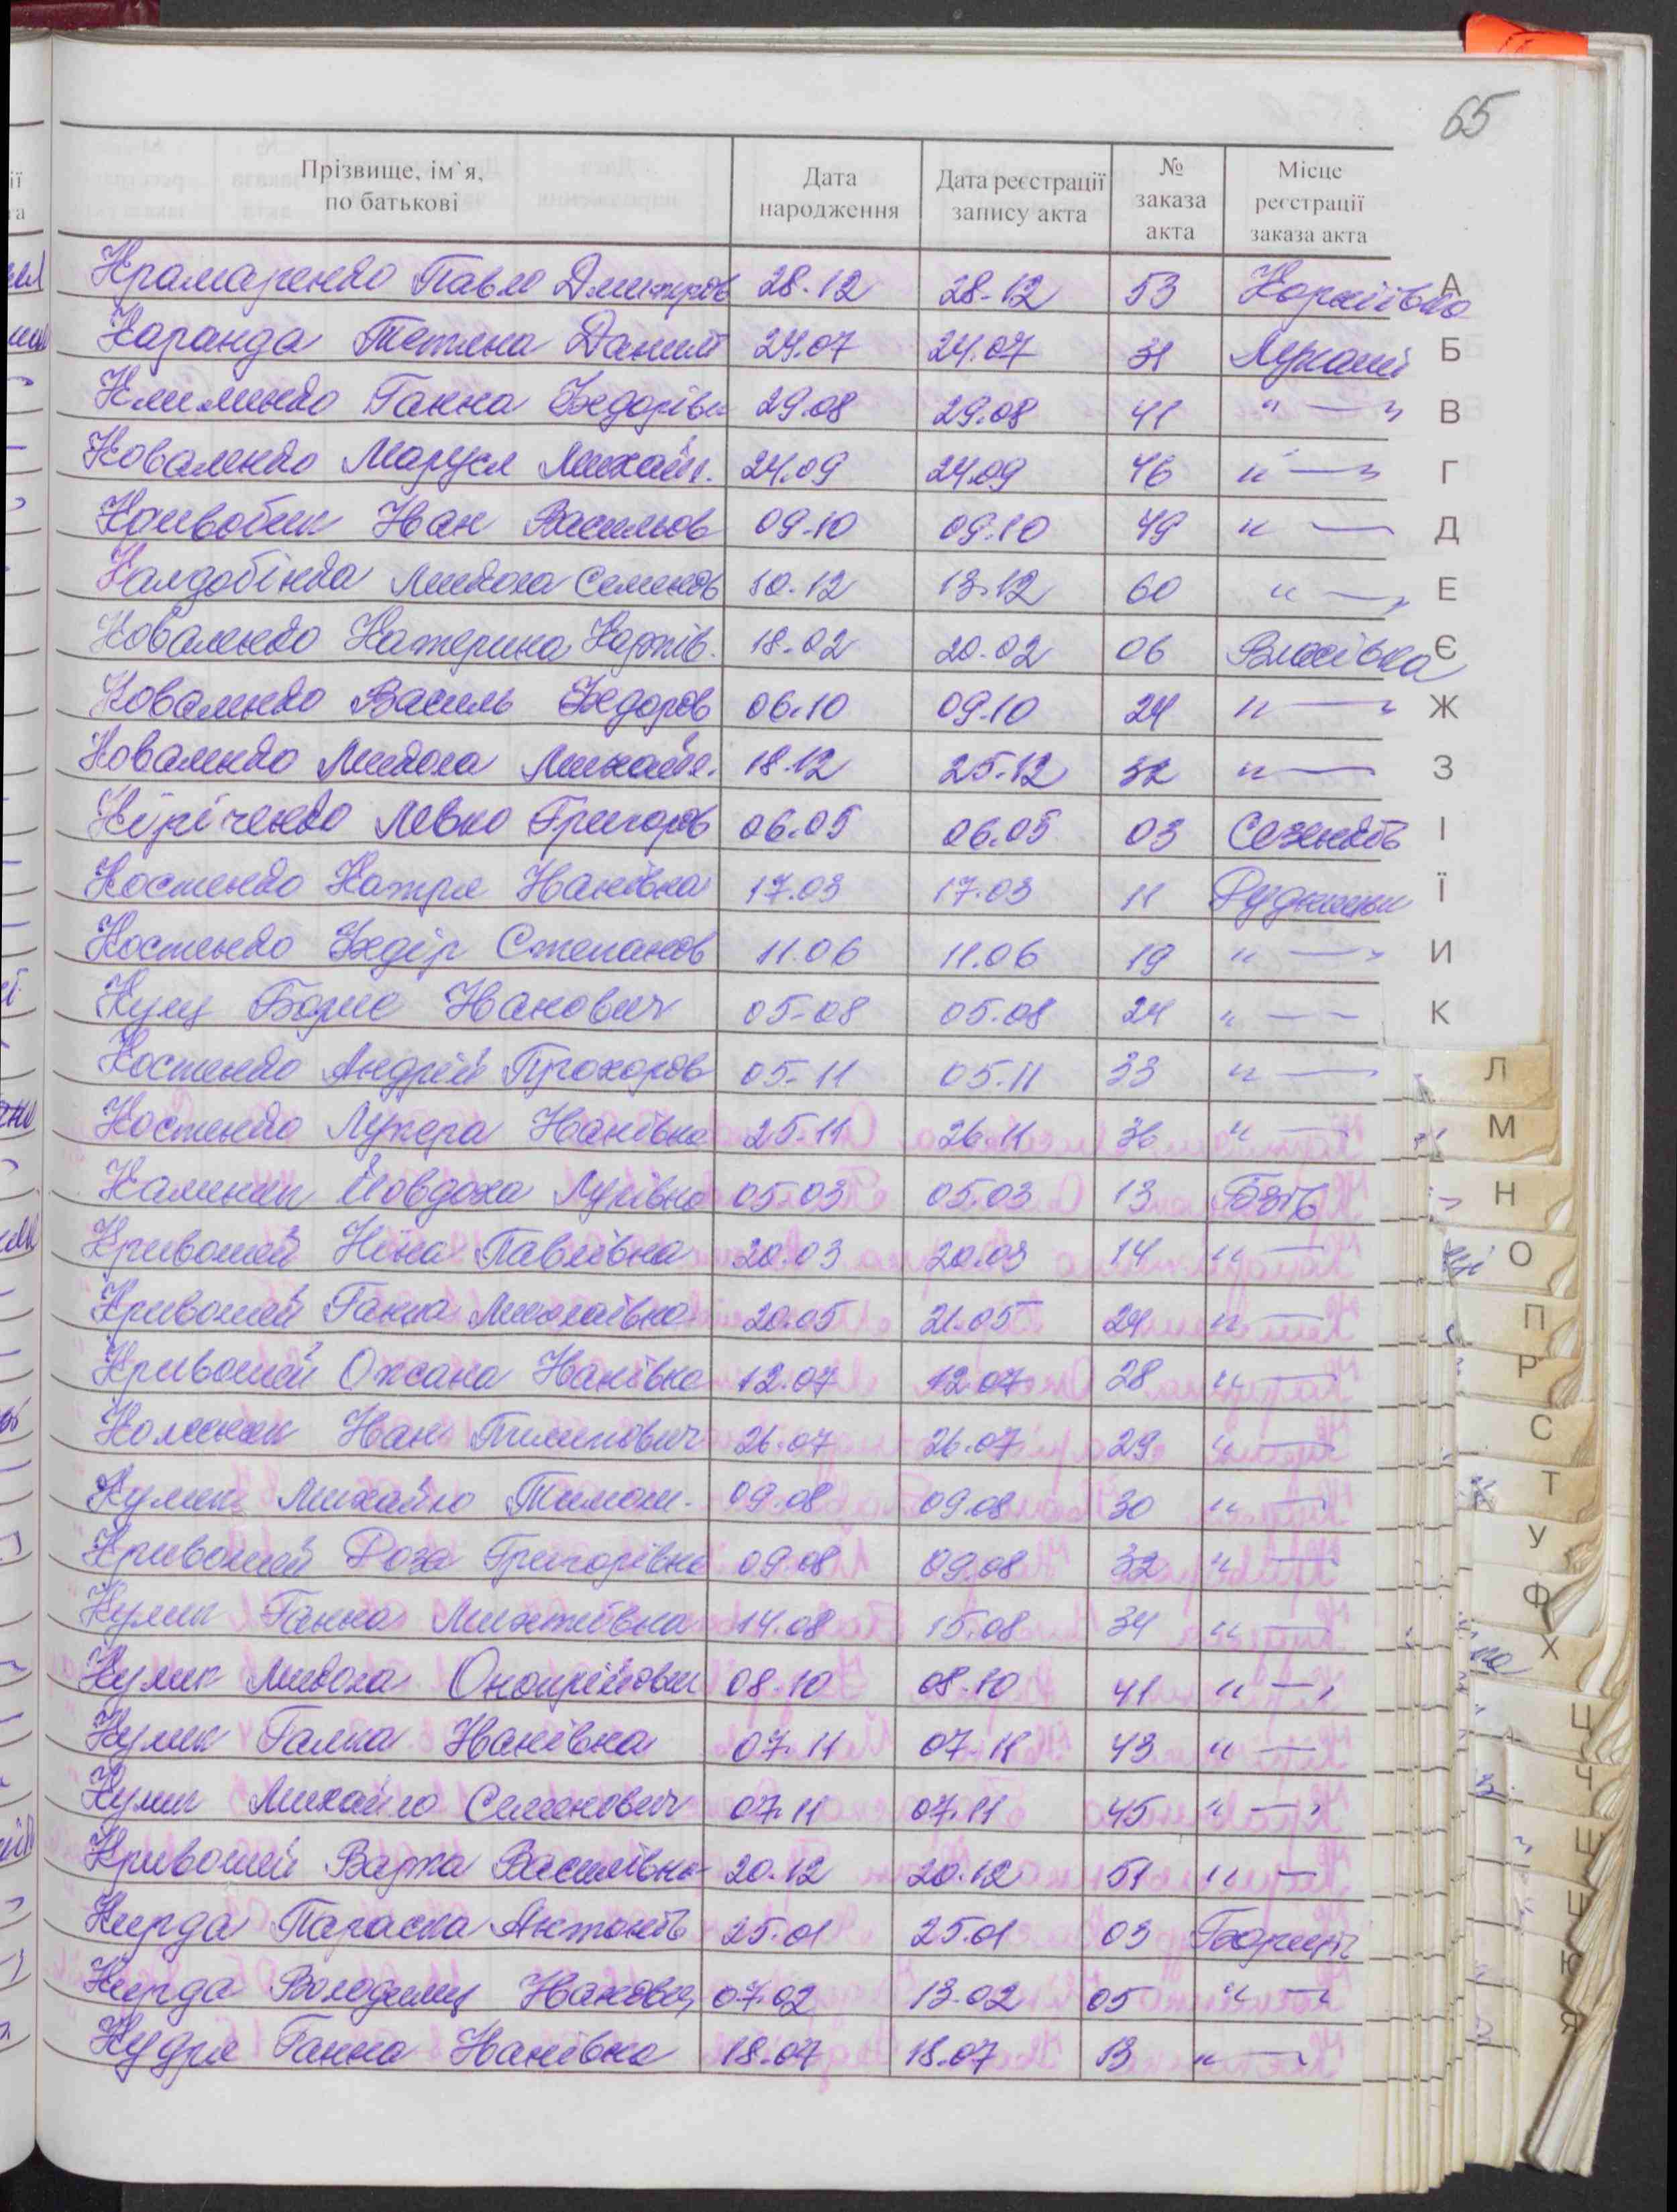 65
Прізвище, ім`я, по батькові Дата народження Дата реєстрації запису акта № заказа акта Місце реєстрації заказа акта
Крамаренко Павло Дмитров 28.12 28.12 53 Корніївка А
Каранда Тетяна Данил 24.07 24.07 31 Лукаші Б
Клименко Ганна Федорівн 29.08 29.08 41 " — " В
Коваленко Маруся Михайл. 24.09 24.09 46 " — " Г
Кривобик Іван Васильов 09.10 09.10 49 " — Д
Калдобінка Микола Семенов 10.12 13.12 60 " — " Е
Коваленко Катерина Карпів. 18.02 20.02 06 Власівка Є
Коваленко Василь Федоров 06.10 09.10 24 " — " Ж
Коваленко Микола Михайл. 18.12 25.12 32 " — З
Кіріченко Левко Григоров 06.05 06.05 03 Сезенків І
Костенко Катря Іванівна 17.03 17.03 11 Рудницьк Ї
Костенко Федір Степанов 11.06 11.06 19 " — " И
Куц Борис Іванович 05.08 05.08 24 " — — К
Костенко Андрій Прохоров 05.11 05.11 33 " — Л
Костенко Лукера Іванівна 25.11 26.11 36 " — М
Калиник Йовдоха Луківна 05.03 05.03 13 Бзів Н
Кривошей Ніна Павлівна 20.03 20.03 14 " — О
Кривошей Ганна Миколаївна 20.05 21.05 24 " — П
Кривошей Оксана Іванівна 12.07 12.07 28 " — Р
Калиник Іван Пилипович 26.07 26.07 29 " — С
Кулик Михайло Тимош. 09.08 09.08 30 " — Т
Кривошей Роза Григорівна 09.08 09.08 32 " — У
Кулик Ганна Микитівна 14.08 15.08 34 " — Ф
Кулик Микола Онопрійович 08.10 08.10 41 " — " Х
Кулик Галка Іванівна 07.11 07.11 43 " — Ц
Кулик Михайло Семенович 07.11 07.11 45 " — " Ч
Кривошей Варка Василівна 20.12 20.12 51 " — Ш
Кирда Параска Антонів 25.01 25.01 03 Борищ Щ
Кирда Володимир Іванович 07.02 13.02 05 " — " Ю
Кудря Ганна Іванівна 18.07 18.07 13 " — Я